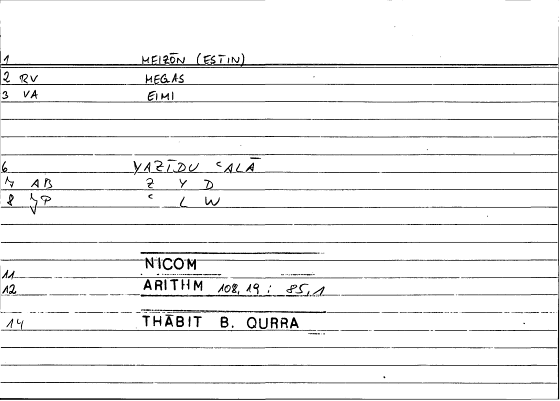 1 MEIZŌN (ESTIN)
2 RV MEGAS
3 VA EIMI
6 YAZĪDU ʿALĀ
7 AB Z Y D
8 ʿ L W
11 NICOM
12 ARITHM 108,19 : 85,1
14 THĀBIT B. QURRA